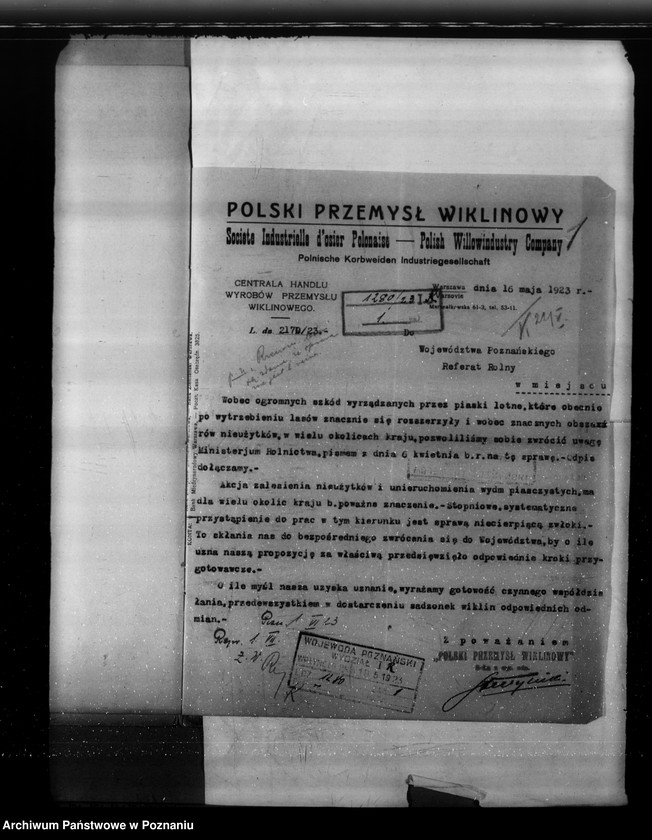 POLSKI PRZEMYSŁ WIKLINOWY
Societe Industrielle d'osier Polonaise — Polish Willowindustry Company
Polnische Korbweiden Industriegesellschaft
1
CENTRALA HANDLU
WYROBÓW PRZEMYSŁU
WIKLINOWEGO.
L. dz 2170/23.-
Warszawa dnia 16 maja 1923 r.-
tel. 53-11.
1280/23
Do
Województwa Poznańskiego
Referat Rolny
w miejscu
Wobec ogromnych szkód wyrządzanych przez piaski lotne, które obecnie
po wytrzebieniu lasów znacznie się rozszerzyły i wobec znacznych obszaxi
rów nieużytków, w wielu okolicach kraju, pozwoliliśmy sobie zwrócić uwagę
Ministerjum Rolnictwa, pismem z dnia 6 kwietnia b.r. na tę sprawę.-Odpis
dołączamy.-
Akcja zalesienia nieużytków i unieruchomienia wydm piaszczystych, ma
dla wielu okolic kraju b. poważne znaczenie.-Stopniowe, systematyczne
przystąpienie do prac w tym kierunku jest sprawą niecierpiącą zwłoki.-
To skłania nas do bezpośredniego zwrócenia się do Województwa, by o ile
uzna naszą propozycję za właściwą przedsięwzięło odpowiednie kroki przy-
gotowawcze.-
O ile myśl nasza uzyska uznanie, wyrażamy gotowość czynnego współdzia
łania, przedewszystkiem w dostarczeniu sadzonek wiklin odpowiednich od-
mian.-
Z poważaniem
"POLSKI PRZEMYSŁ WIKLINOWY"
WOJEWODA POZNAŃSKI
WYDZIAŁ
Archiwum Państwowe w Poznaniu